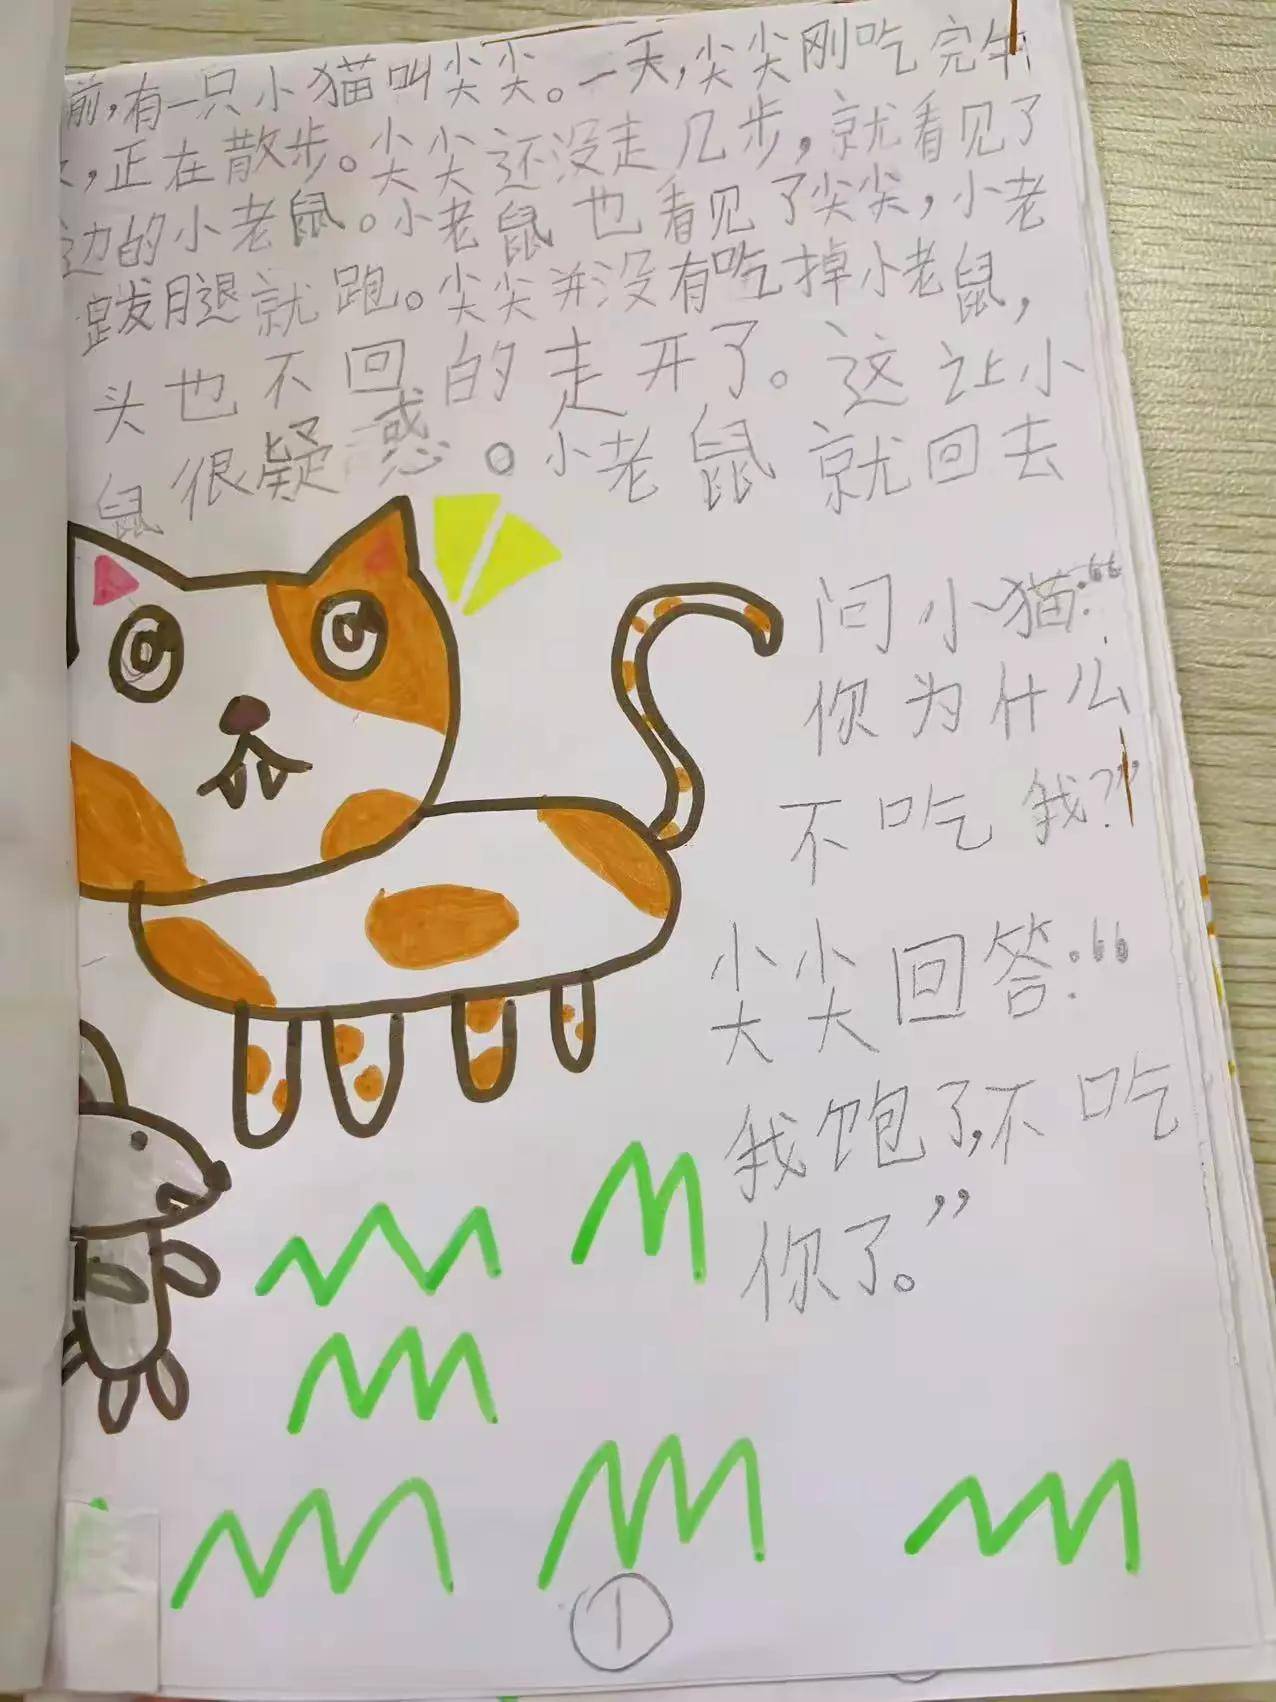 前，有一只小猫叫尖尖。一天，尖尖刚吃完午
，正在散步。尖尖还没走几步，就看见了
边的小老鼠。小老鼠也看见了尖尖，小老
跋腿就跑。尖尖并没有吃掉小老鼠，
头也不回的走开了。这让小
鼠很疑惑。小老鼠就回去
问小猫：“
你为什么
不吃我？”
尖尖回答：“
我饱了，不吃
你了。”
1